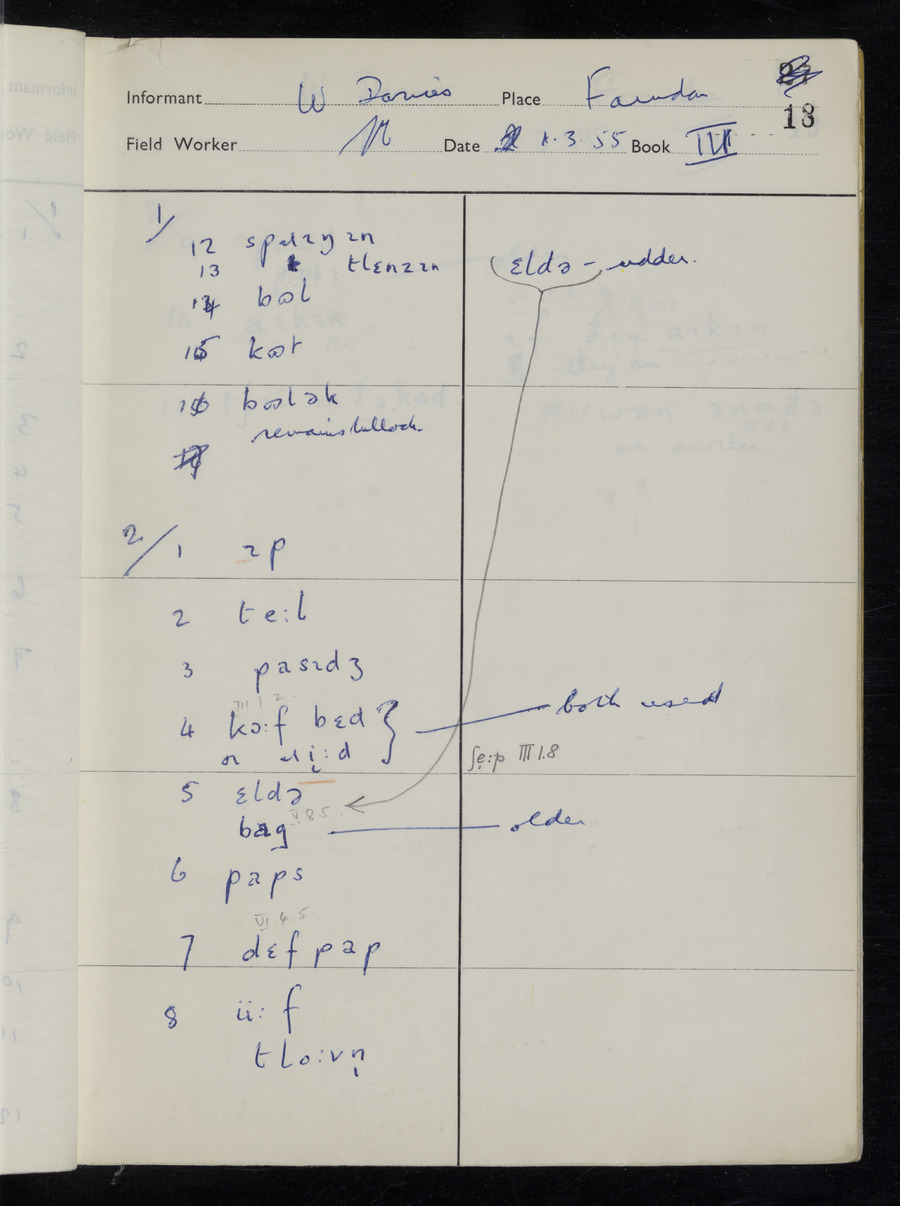 Informant W Davies Place Farndon
13
Field Worker Date 1.3.55 Book III
1/
12 speɪɪŋ ɪn
13 tlenzɪn
14 bʊl
15 kʊt
16 bʊlək
remains bullock.
ɛldə – udder.
2/ 1 ɪp
2 te:l
3 pasɪdʒ
III.1.2
4 kɔ:f bɛd } both used
or
ʃe̞:p III 1.8
5 ɛldə
V.8.5.
bag older
6 paps
VI.4.5.
7 dɛf pap
8 ii:f
tlo:vn̩